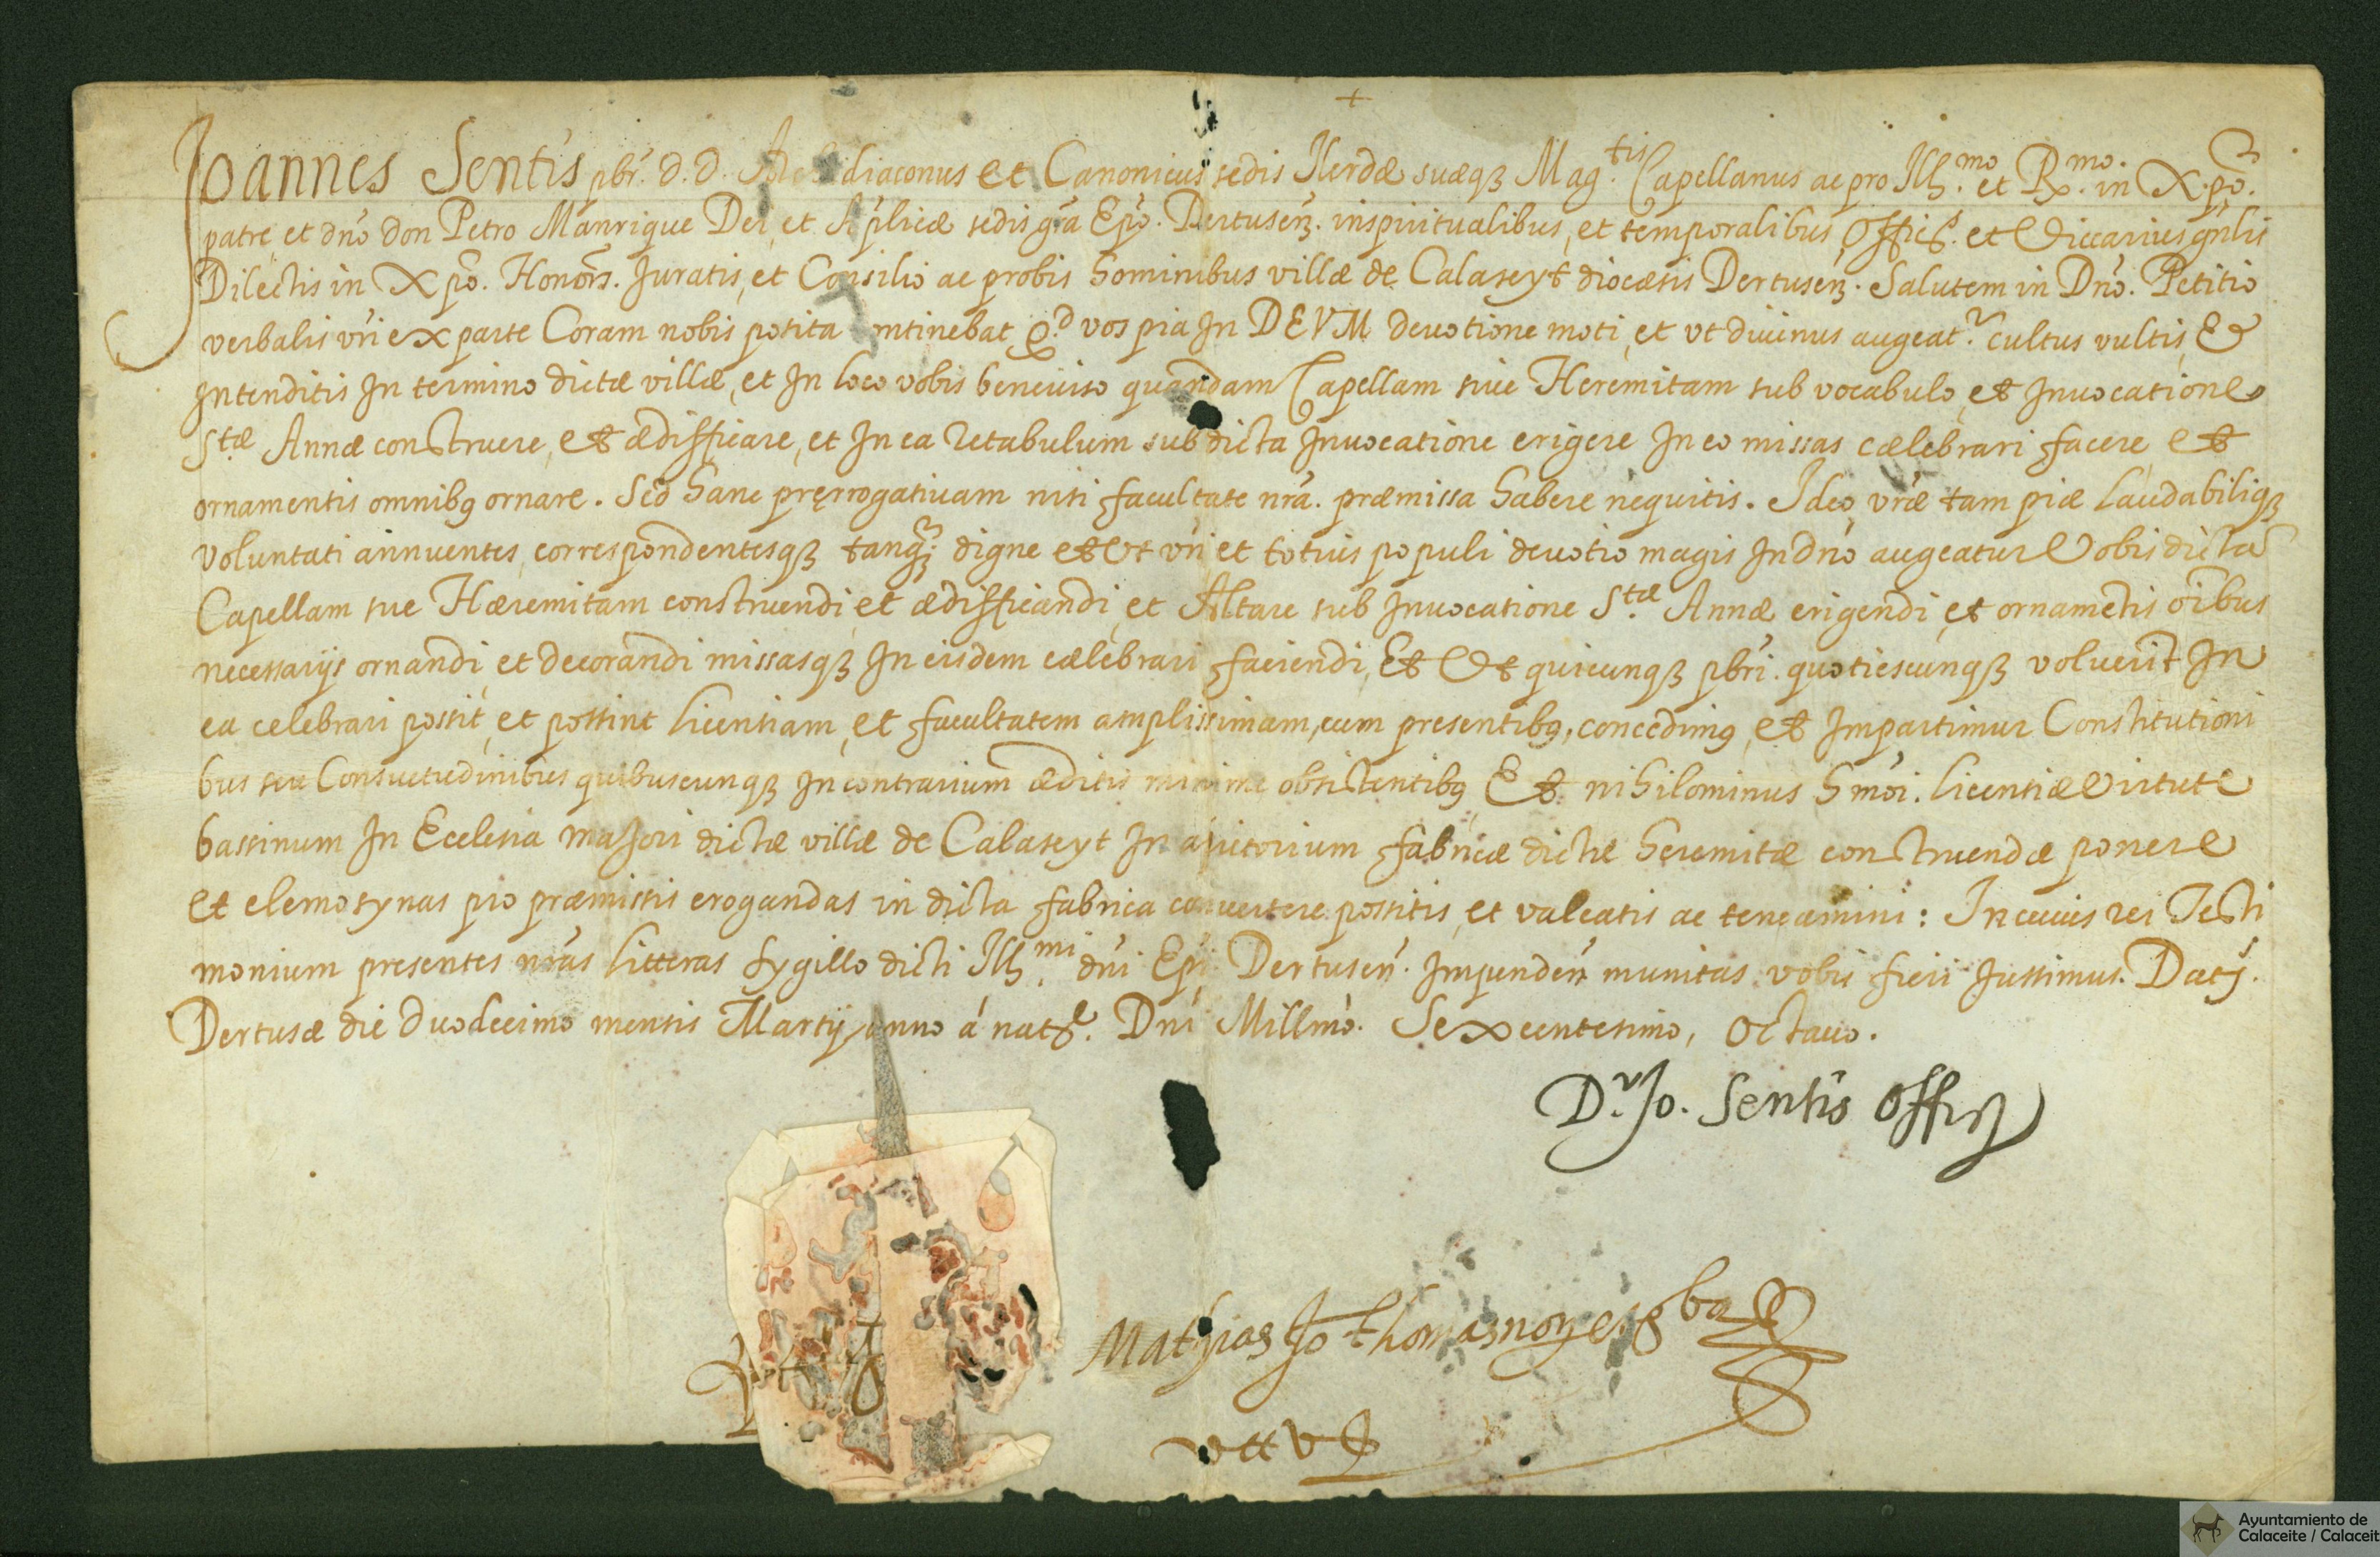 +
Joannes Sentis pbr. d. d. diaconus et Canonicus sedis Ilerdæ suæq3 Mag.tis Capellanus ac pro Ill.mo et R.mo in X.po.
patre et dno don Petro Manrique Dei, et Aplicæ sedis gra Epo. Dertusen. in spiritualibus, et temporalibus Offics. et Viccarius gnlis
Dilectis in Xpo. Honors. Juratis, et Consilio ac probis hominibus villæ de Calaseyt diocæsis Dertusen. Salutem in Dno. Petitio
verbalis vri ex parte Coram nobis posita ntinebat q.d vos pia In DEVM devotione moti, et vt divinus augeat.r cultus vultis, Et
Intenditis In termino dictæ villæ, et In loco vobis beneviso quandam Capellam sive Heremitam sub vocabulo, et Invocatione
S.tæ Annæ construere, et ædifficare, et In ea retabulum sub dicta Invocatione erigere In eo missas cælebrari facere et
ornamentis omnib9 ornare. Sed hanc pręrrogativam nisi facultate nra. præmissa habere nequitis. Ideo, vræ tam piæ laudabiliq3
voluntati annuentes, correspondentesq3 tanq3 digne et Vt vri et totius populi devotio magis In dno augeatur Vobis dictã
Capellam sve Hæremitam construendi, et ædifficandi, et Altare sub Invocatione S.tæ Annæ erigendi, et ornamẽtis oĩbus
necessarijs ornandi, et decorandi missasq3 In eisdem cælebrari faciendi, Et Vt quicunq3 pbri. quotiescunq3 voluerĩt In
ea celebrari possit, et possint licentiam, et facultatem amplissimam, cum presentib9, concedim9, et Impartimur Constitutioni
bus seu Consuetudinibus quibuscunq3 In contrarium æditis minime obsistentib9, Et nihilominus hmoi. licentiæ Virtute
bassinum In Ecclesia majori dictæ villæ de Calaseyt In ajutorium fabricæ dictæ heremitæ construendæ ponere
et elemosynas pro præmissis erogandas in dicta fabrica convertere possitis, et valeatis ac teneamini: In cuius rei Testi
monium presentes nras litteras sygillo dicti Ill.mi dni Epi Dertusen. Impendẽn munitas vobis fieri Jussimus. Datj.
Dertusæ die duodecimo mensis Martij anno á nat.e Dni Millmo. Sexcentesimo, Octavo.
D.r Jo. Sentis Offis
Mathias Jo Thomas
Ayuntamiento de
Calaceite / Calaceit